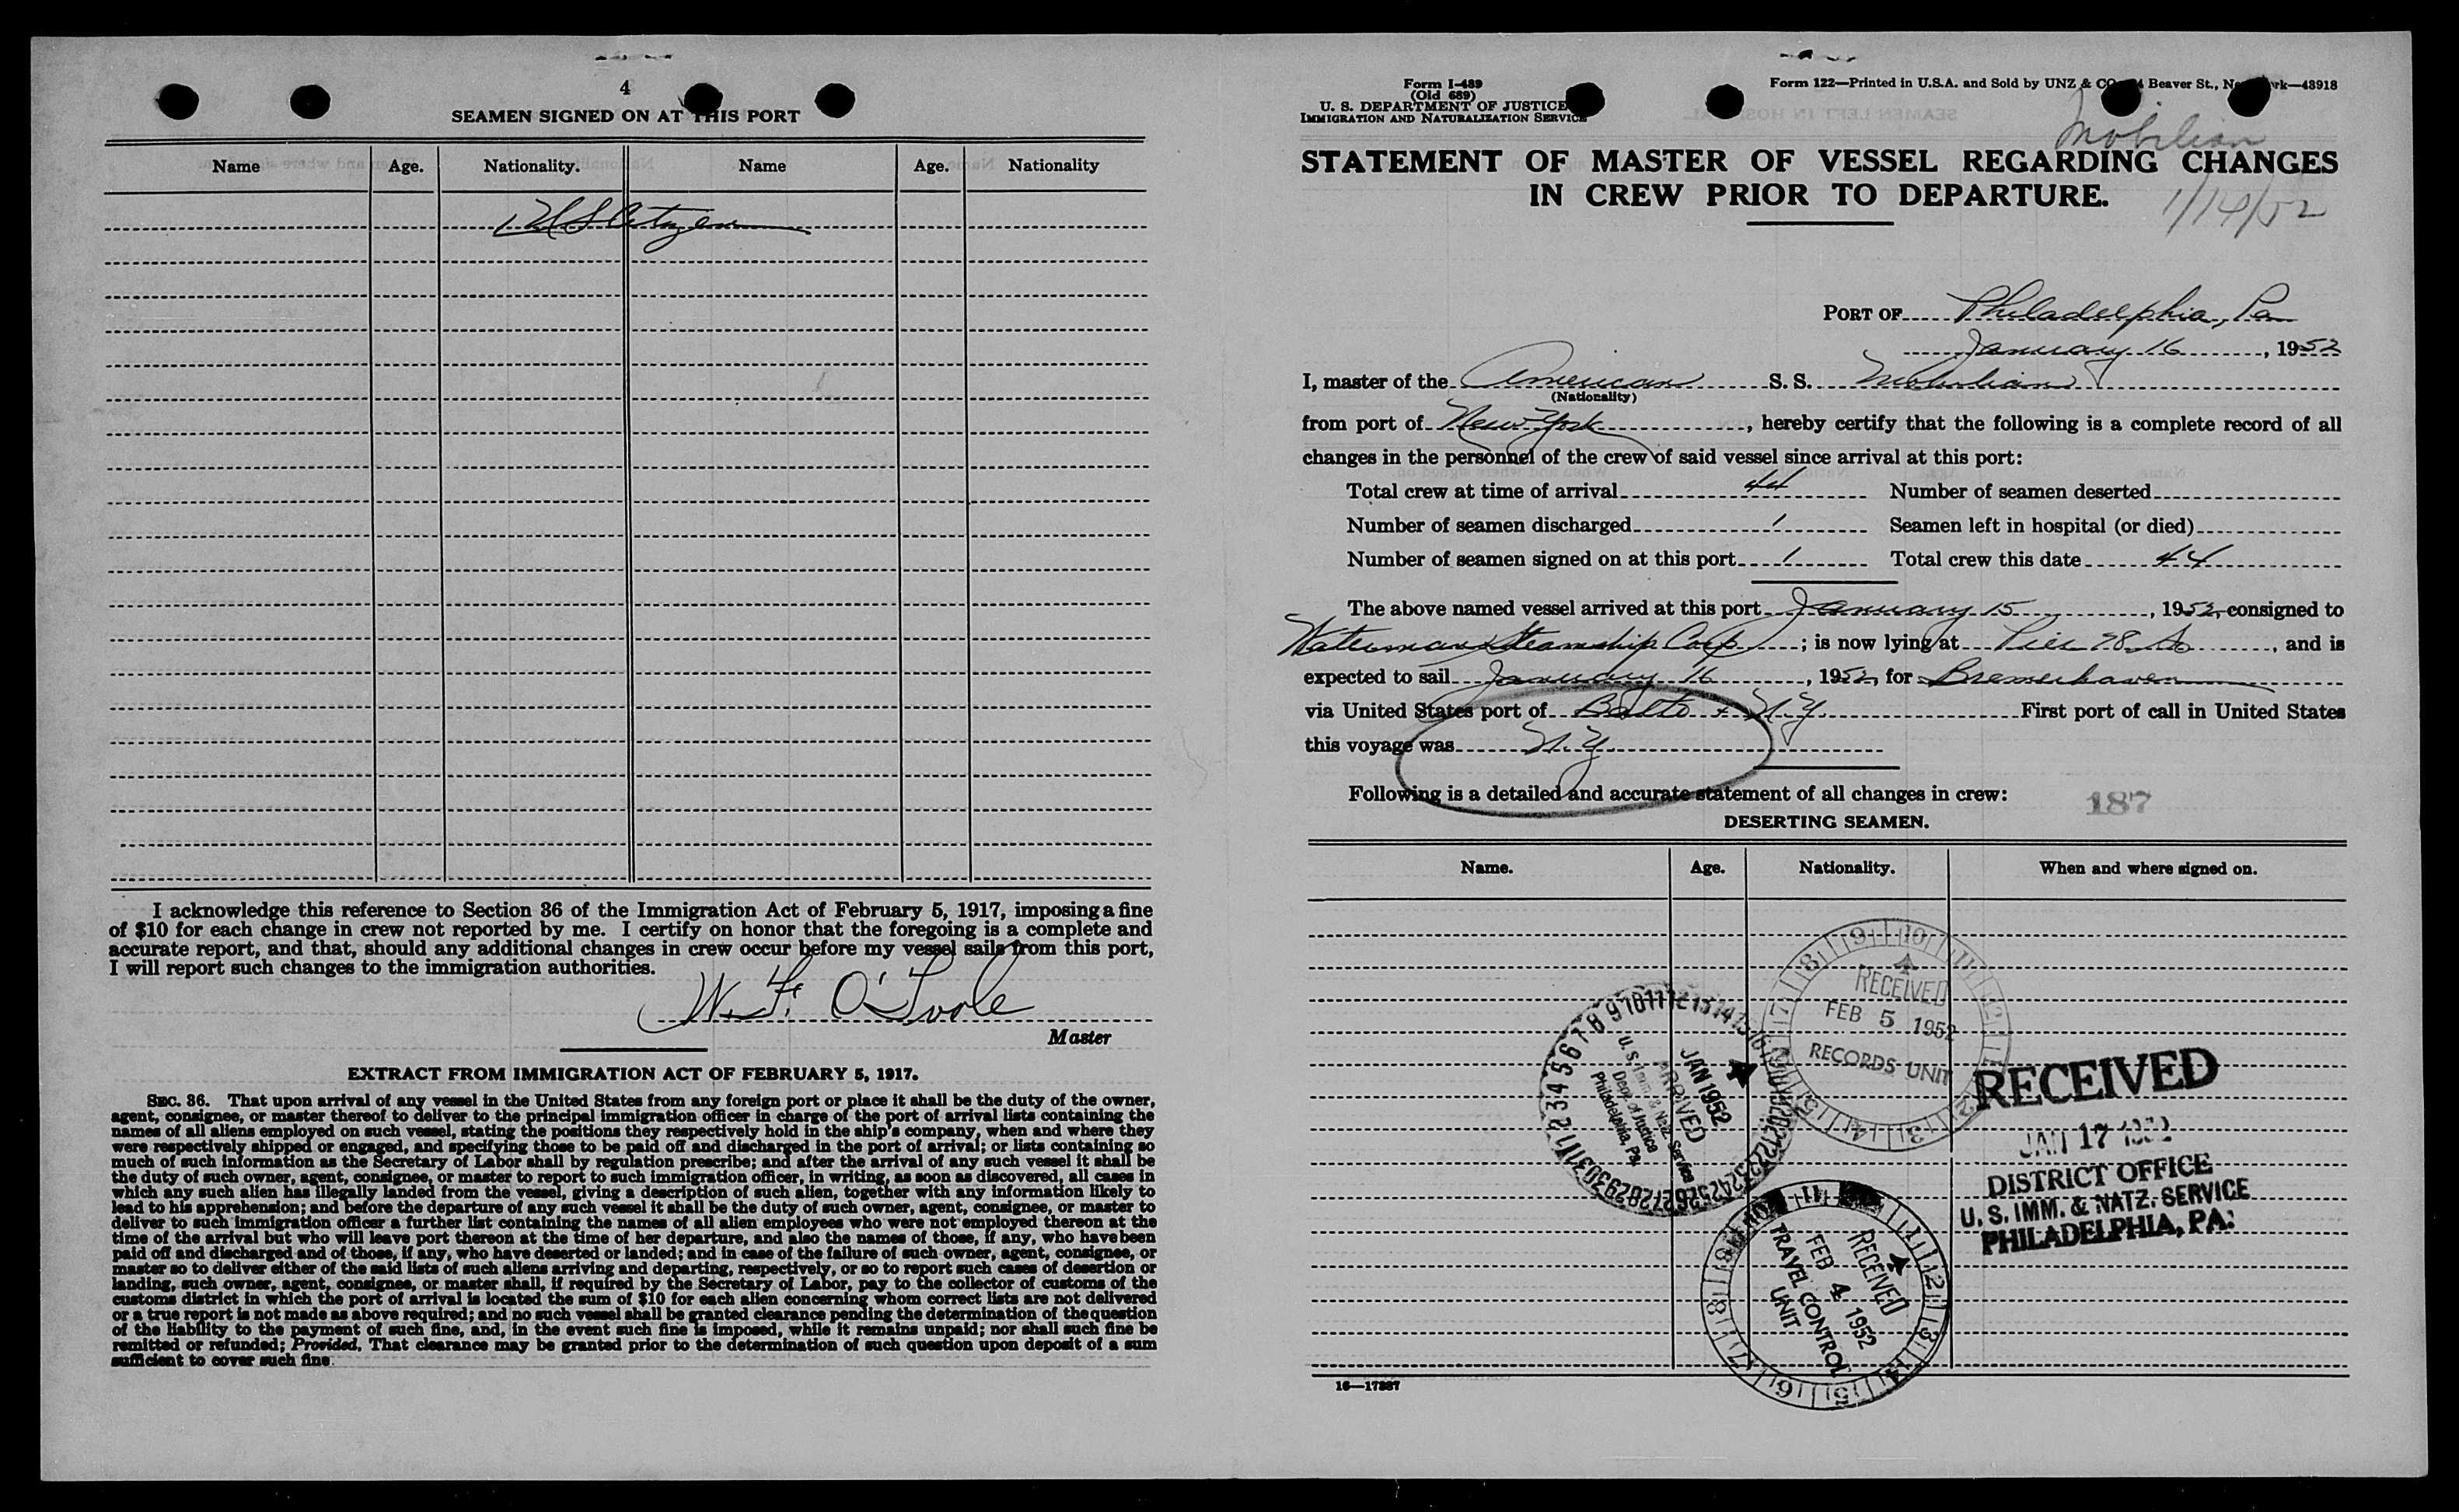 4
SEAMEN SIGNED ON AT THIS PORT
Name Age. Nationality. Name Age. Nationality
U S Citizen
I acknowledge this reference to Section 36 of the Immigration Act of February 5, 1917, imposing a fine
of $10 for each change in crew not reported by me. I certify on honor that the foregoing is a complete and
accurate report, and that, should any additional changes in crew occur before my vessel sails from this port,
I will report such changes to the immigration authorities.
W. F. O'Toole
Master
EXTRACT FROM IMMIGRATION ACT OF FEBRUARY 5, 1917.
SEC. 36. That upon arrival of any vessel in the United States from any foreign port or place it shall be the duty of the owner,
agent, consignee, or master thereof to deliver to the principal immigration officer in charge of the port of arrival lists containing the
names of all aliens employed on such vessel, stating the positions they respectively hold in the ship's company, when and where they
were respectively shipped or engaged, and specifying those to be paid off and discharged in the port of arrival; or lists containing so
much of such information as the Secretary of Labor shall by regulation prescribe; and after the arrival of any such vessel it shall be
the duty of such owner, agent, consignee, or master to report to such immigration officer, in writing, as soon as discovered, all cases in
which any such alien has illegally landed from the vessel, giving a description of such alien, together with any information likely to
lead to his apprehension; and before the departure of any such vessel it shall be the duty of such owner, agent, consignee, or master to
deliver to such immigration officer a further list containing the names of all alien employees who were not employed thereon at the
time of the arrival but who will leave port thereon at the time of her departure, and also the names of those, if any, who have been
paid off and discharged and of those, if any, who have deserted or landed; and in case of the failure of such owner, agent, consignee, or
master so to deliver either of the said lists of such aliens arriving and departing, respectively, or so to report such cases of desertion or
landing, such owner, agent, consignee, or master shall, if required by the Secretary of Labor, pay to the collector of customs of the
customs district in which the port of arrival is located the sum of $10 for each alien concerning whom correct lists are not delivered
or a true report is not made as above required; and no such vessel shall be granted clearance pending the determination of the question
of the liability to the payment of such fine, and, in the event such fine is imposed, while it remains unpaid; nor shall such fine be
remitted or refunded; Provided, That clearance may be granted prior to the determination of such question upon deposit of a sum
sufficient to cover such fine.
Form I-489
(Old 689)
U. S. DEPARTMENT OF JUSTICE
IMMIGRATION AND NATURALIZATION SERVICE
Form 122—Printed in U.S.A. and Sold by UNZ & CO Beaver St., N rk—43918
Mobilian
STATEMENT OF MASTER OF VESSEL REGARDING CHANGES
IN CREW PRIOR TO DEPARTURE.
1/14/52
PORT OF Philadelphia, Pa
January 16, 1952
I, master of the American S. S. Mobilian
(Nationality)
from port of New York, hereby certify that the following is a complete record of all
changes in the personnel of the crew of said vessel since arrival at this port:
Total crew at time of arrival 44 Number of seamen deserted
Number of seamen discharged 1 Seamen left in hospital (or died)
Number of seamen signed on at this port 1 Total crew this date 44
The above named vessel arrived at this port January 15, 1952, consigned to
Waterman Steamship Corp; is now lying at Pier 78 So, and is
expected to sail January 16, 1952, for Bremerhaven
via United States port of Balto + N.Y. First port of call in United States
this voyage was N.Y.
Following is a detailed and accurate statement of all changes in crew:
187
DESERTING SEAMEN.
Name. Age. Nationality. When and where signed on.
RECEIVED
FEB 5 1952
RECORDS UNIT
JAN 1952
ARRIVED
U. S. Imm. & Natz. Service
Dept. of Justice
Philadelphia, Pa.
RECEIVED
JAN 17 1952
DISTRICT OFFICE
U. S. IMM. & NATZ. SERVICE
PHILADELPHIA, PA.
RECEIVED
FEB 4 1952
TRAVEL CONTROL
UNIT
16—17887